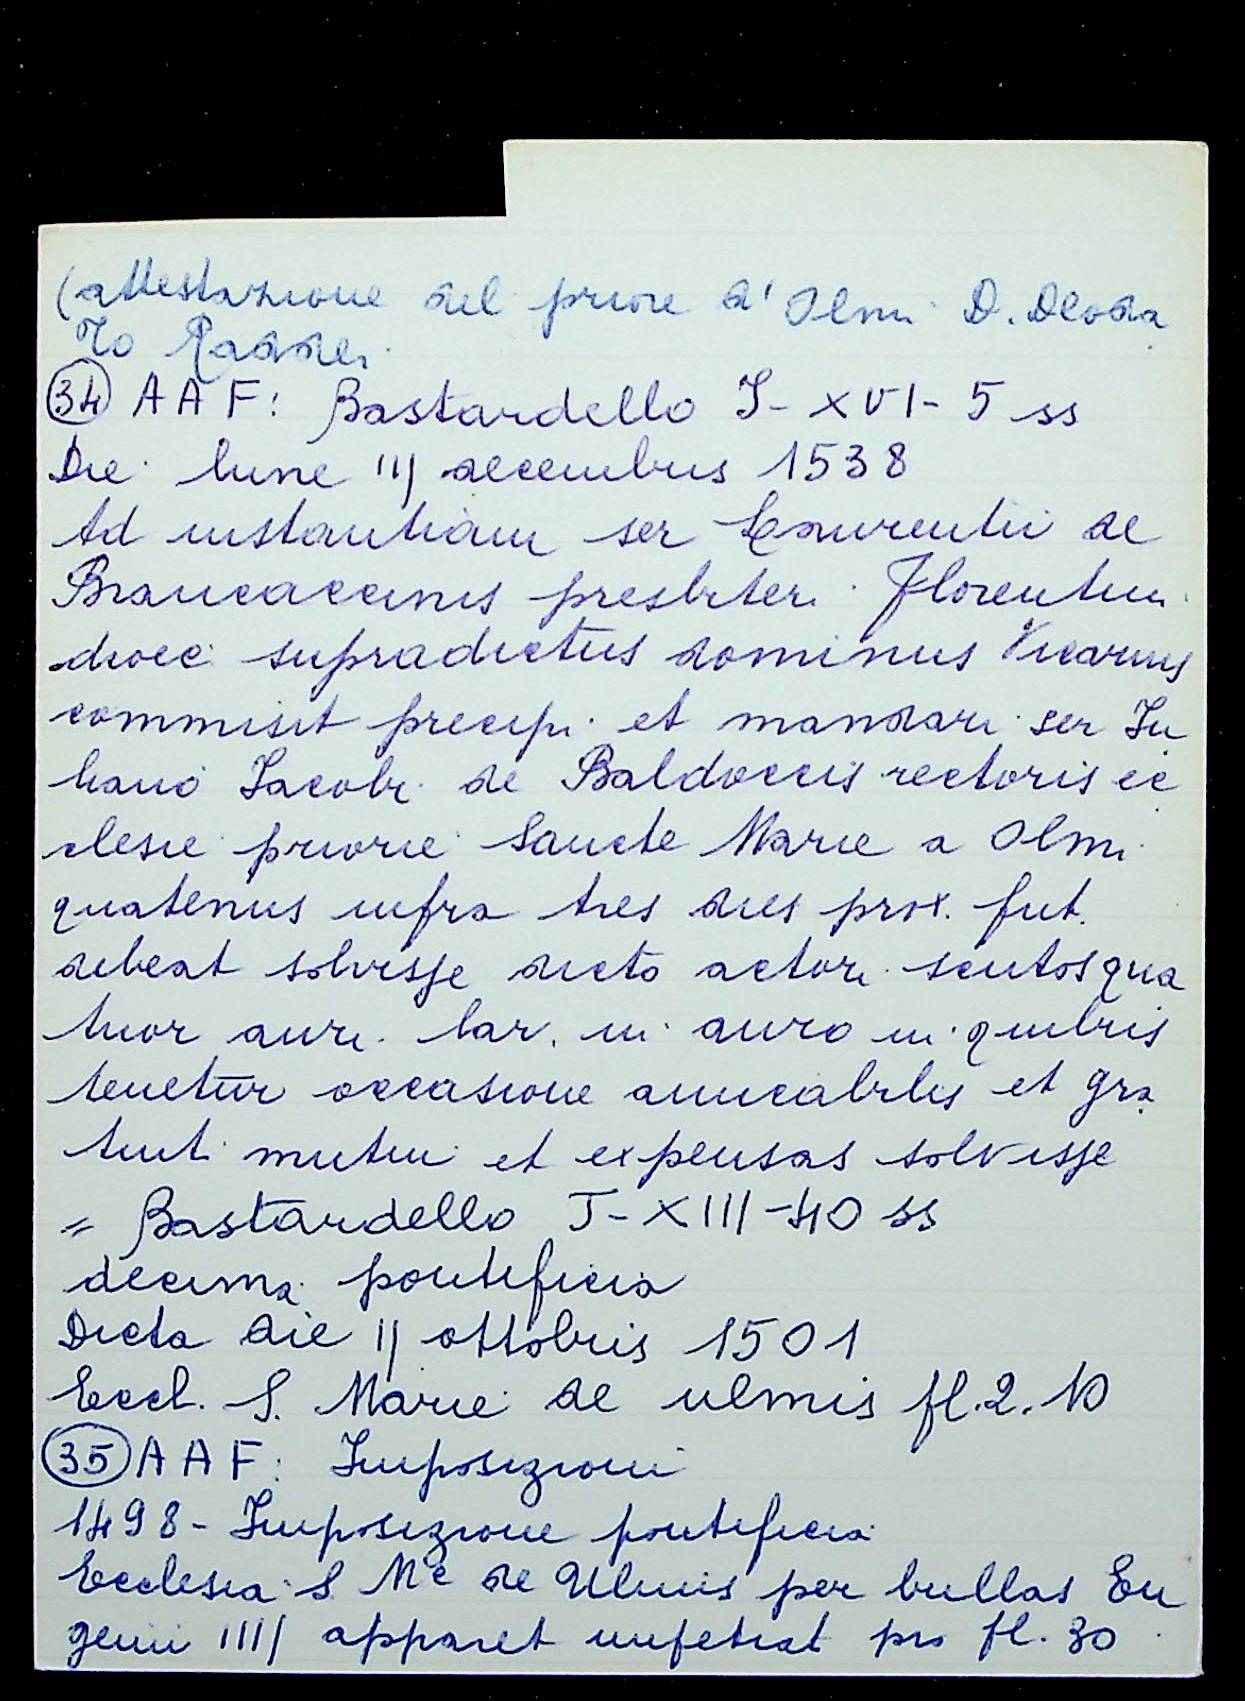 (attestazione del priore d' Olmi D. Deoda
to Raddi
34 A A F: Bastardello I - XVI - 5 ss
Die lune IIJ decembris 1538
Ad instantiam ser Laurentii de
Brancaccinis presbiteri Florentin.
dioec supradictus dominus Vicarius
commisit precipi et mandari ser Iu
liano Iacobi de Baldoccis rectoris ec
clesie priorie Sancte Marie a Olmi
quatenus infra tres dies prox. fut.
debeat solvisse dicto actori scutos qua
tuor auri lar. in auro in quibus
tenetur occasione amicabilis et gra
tuiti mutui et expensas solvisse
= Bastardello I - XIII - 40 ss
decima pontificia
Dicta die IJ ottobris 1501
Eccl. S. Marie de ulmis fl. 2. 10
35 A A F: Imposizioni
1498 - Imposizione pontificia
Ecclesia S Me de Ulmis per bullas Eu
genii IIIJ apparet impetrat pro fl. 30